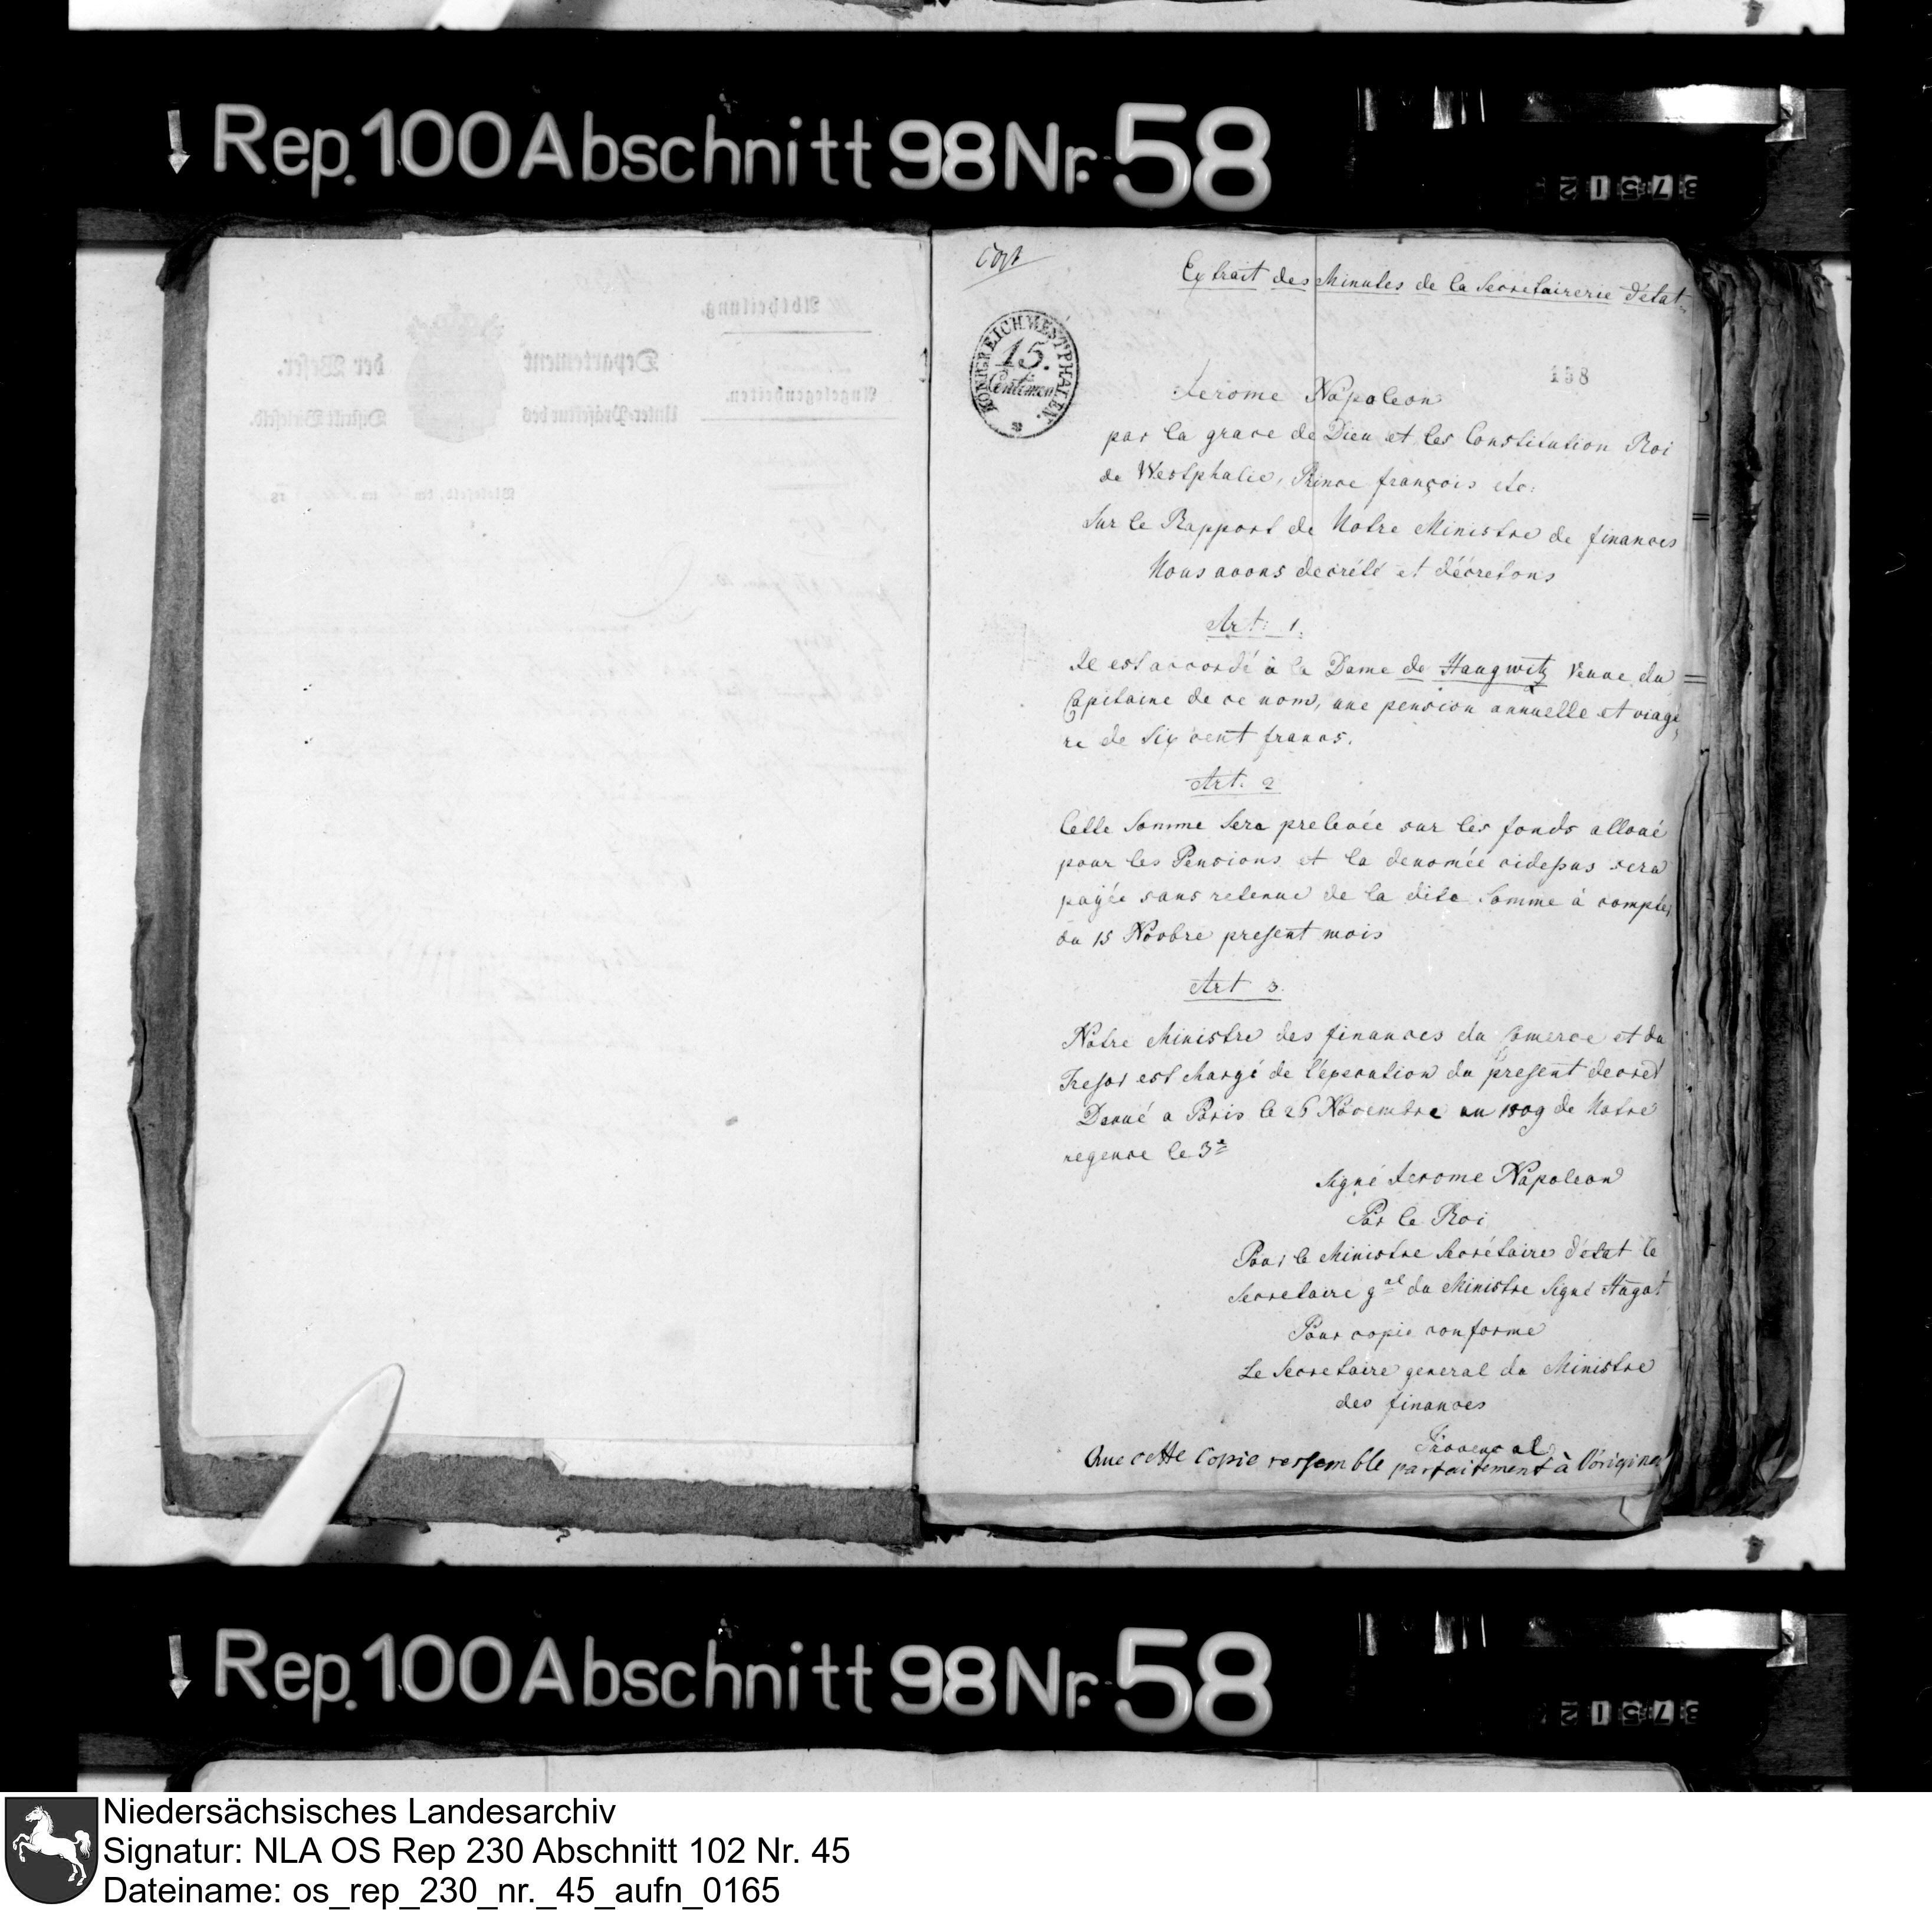 Rep. 100 Abschnitt 98 Nr. 58
37512
Abtheilung.
Departement
der Weser.
Angelegenheiten.
Unter-Präfektur des
Distrikts Bielefeld.
Extrait des Minutes de la Secretairerie d'état
KÖNIGREICH WESTPHALEN.
15.
Centimen
198
Jerome Napoleon
par la grace de Dieu et les Constitution Roi
de Westphalie, Prince françois etc:
Sur le Rapport de Notre Ministre de finances
Nous avons decrété et décretons
Art: 1.
Il est accordé à la Dame de Haugwitz Veuve du
Capitaine de ce nom, une pension annuelle et viagé
re de Six cent francs.
Art. 2
Cette Somme Sera prelevée sur les fonds alloué
pour les Pensions et la denomée cidessus sera
payée sans retenue de la dite Somme à compter
du 15 Novbre present mois
Art 3.
Notre Ministre des finances du Comerce et du
Tresor est chargé de l'execution du present decret
Donné a Paris le 26 Novembre an 1809 de Notre
regence le 3e
Signé Jerome Napoleon
Par le Roi
Pour le Ministre Secrétaire d'état le
Secretaire gal du Ministre Signé Hugot
Pour copie conforme
Le Secretaire general du Ministre
des finances
Provençal
Que cette Copie ressemble parfaitement à l'original
Rep. 100 Abschnitt 98 Nr. 58
37512
Niedersächsisches Landesarchiv
Signatur: NLA OS Rep 230 Abschnitt 102 Nr. 45
Dateiname: os_rep_230_nr._45_aufn_0165